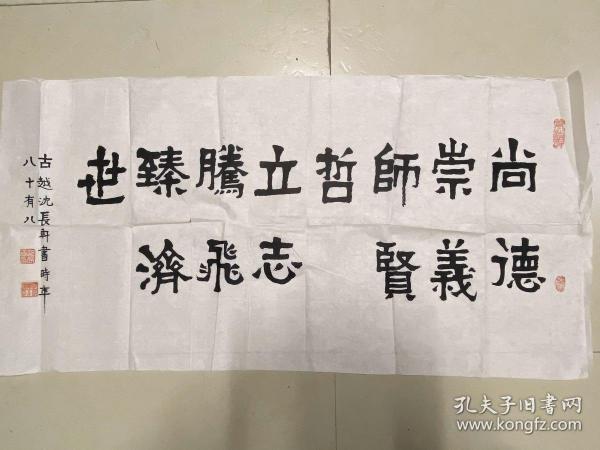 尚德
崇義
師賢
哲
立志
騰飛
臻濟
世
古越沈長軒書時年
八十有八
孔夫子旧书网
www.kongfz.com